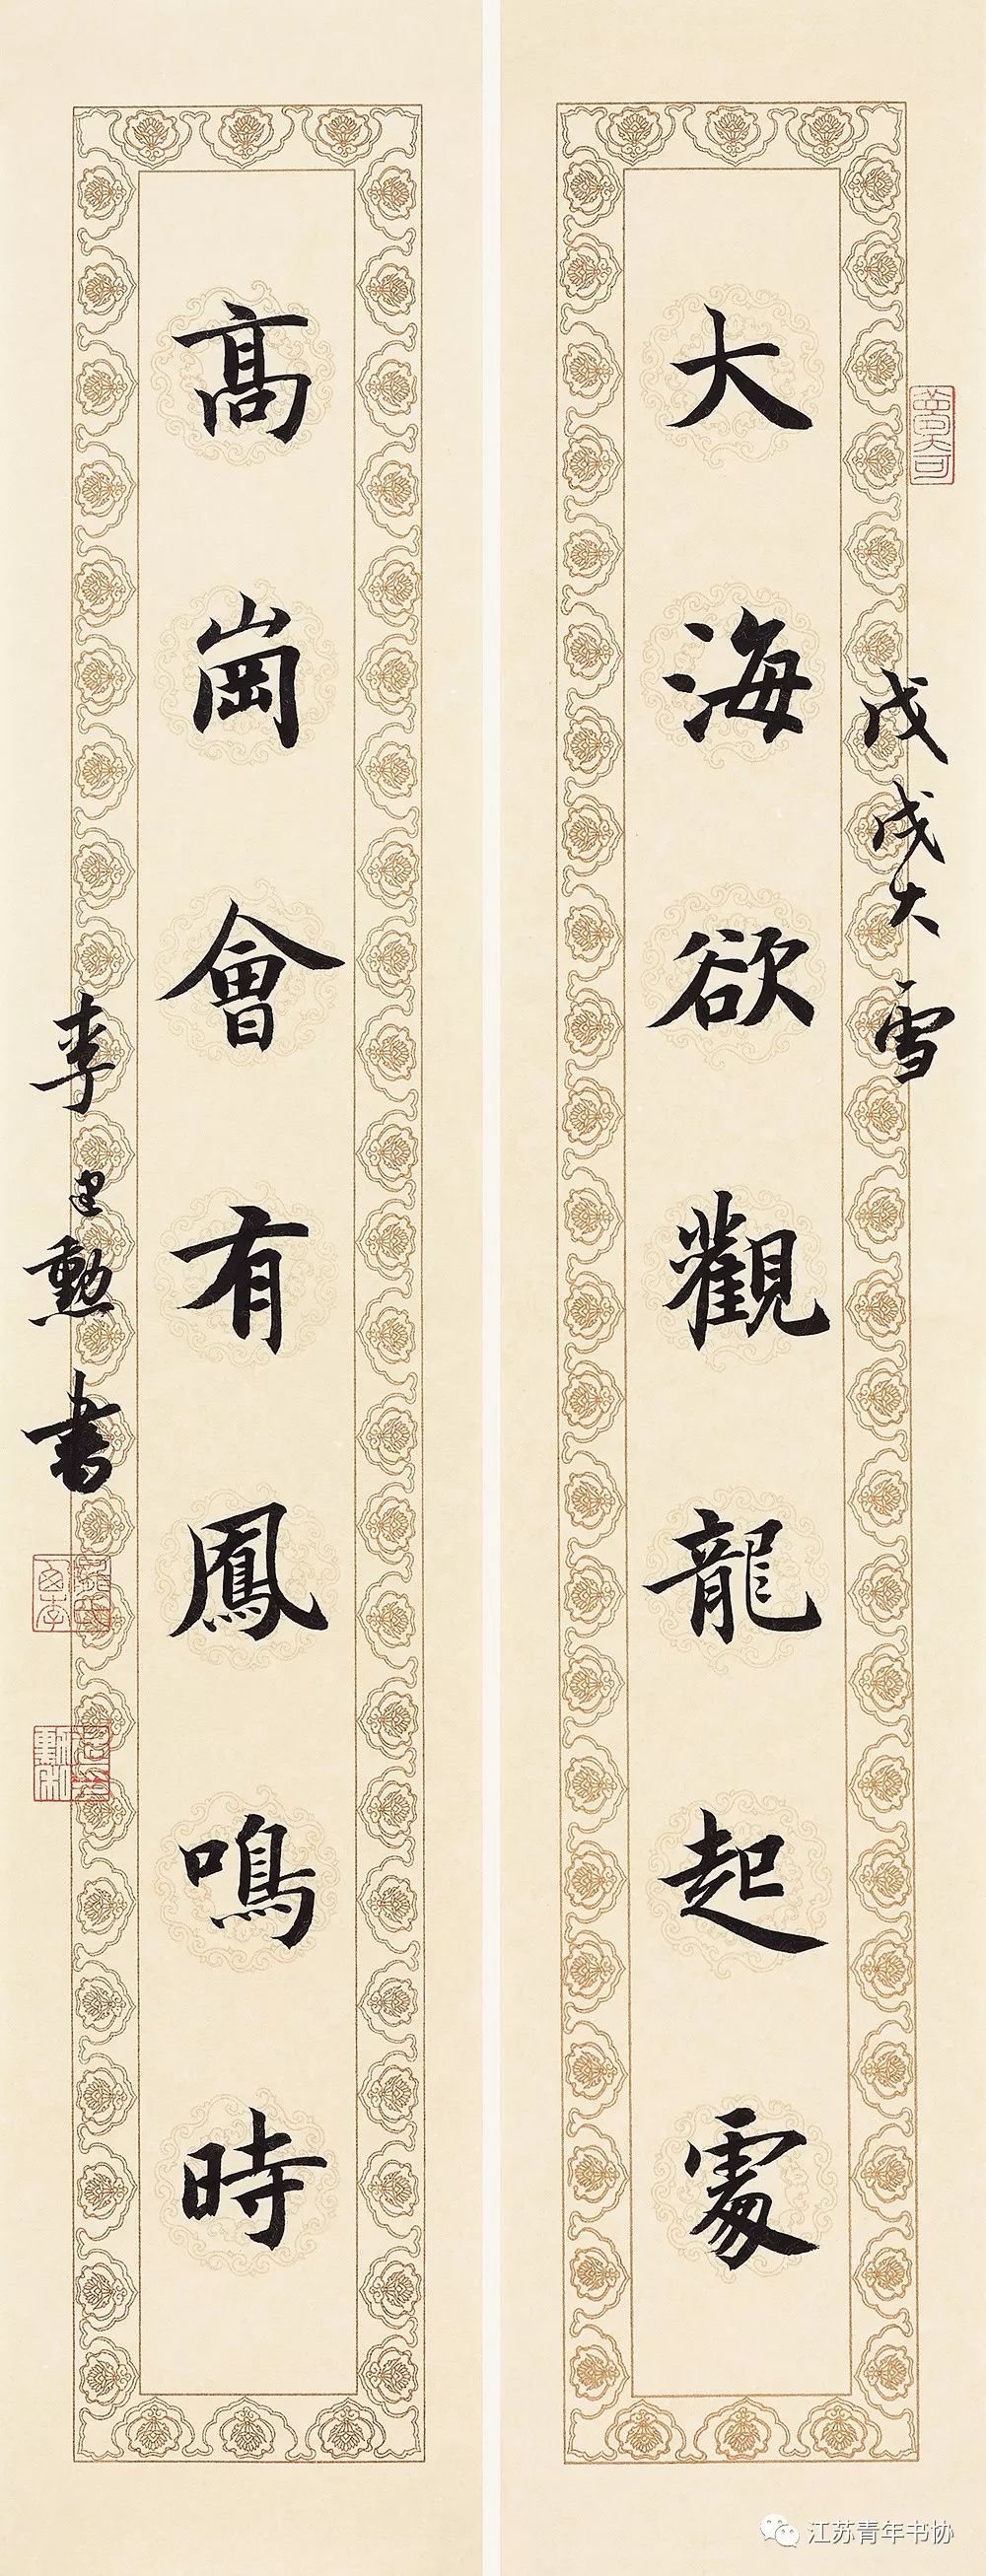 戊戌大雪
大海欲觀龍起處
高崗會有鳳鳴時
李建勳書
江苏青年书协